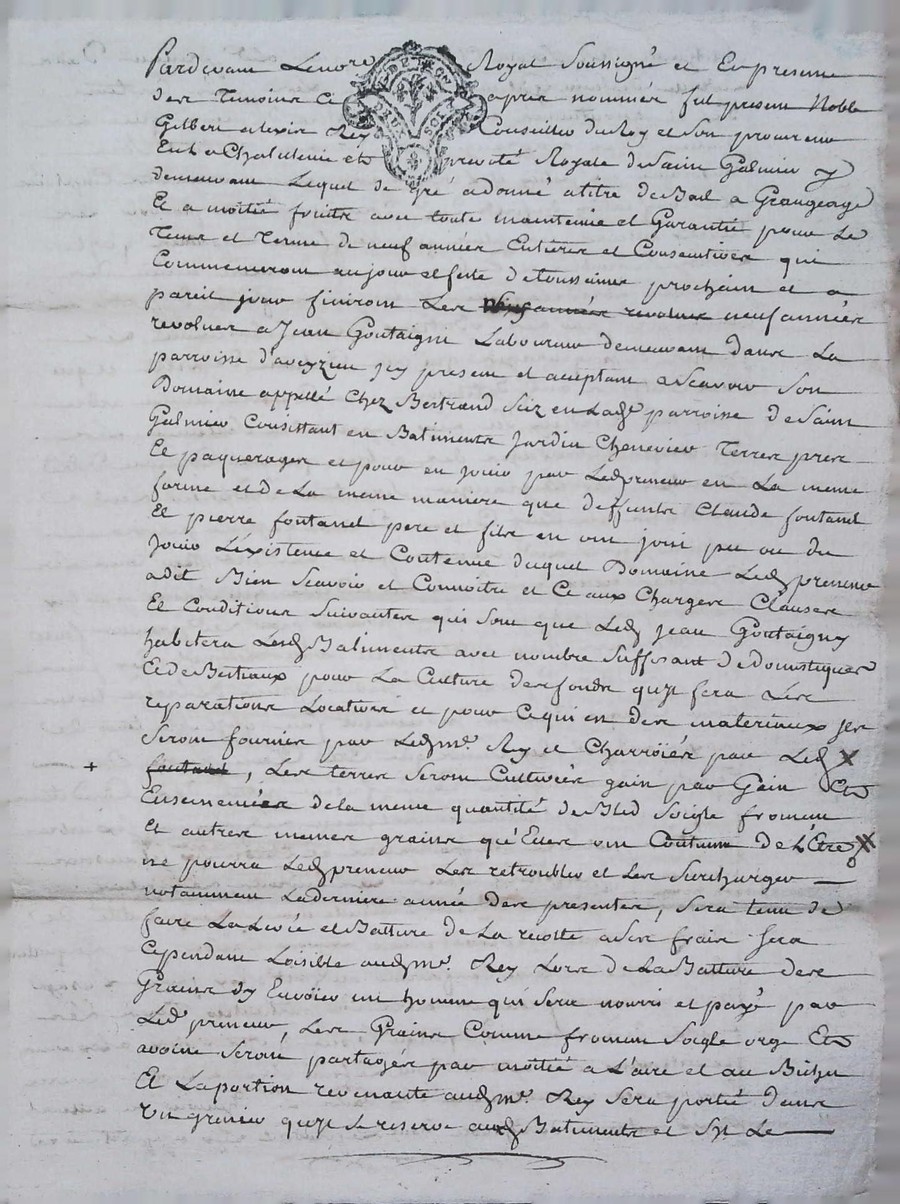 Pardevant Lenore Royal Soussigné et En presence
des Temoins Ci apres nommés fut present Noble
Gilbert alexis Rey Conseiller du Roy et Son procureur
En la Chatelenie et prevoté Royale de Saint Galmier y
demeurant Lequel de gré a donné a titre de Bail a Grangeage
Et a moitié fruits avec toute maintenüe et Garantié pour Le
Tems et Terme de neuf années Entieres et Consecutives qui
Commenceront au jour et feste de toussaints prochain et a
pareil jour finiront Les années revolues neuf années
revolues a Jean Goutaigni Laboureur demeurant dans La
parroisse d'aveyzieu Jcy present et aceptant a Scavoir Son
Domaine appellé Chez Bertrand Sciz en Lad parroisse de Saint
Galmier Consistant en Batiments Jardin Chenevier Terres pres
Et paquerages et pour en Jouir par Led preneur en La meme
forme et de La meme maniere que deffunts Claude fontanel
Et pierre fontanel pere et fils en ont joui peu ou du
Jouir L'existence et Contenüe duquel Domaine Led preneur
a dit Bien Scavoir et Connoitre et Ce aux Charges Clauses
Et Conditions Suivantes qui Sont que Led Jean Goutaigny
habitera Lesd Batiments avec nombre Suffisant de Domestiques
Et de Bestiaux pour La Culture des fonds qu'il fera Les
reparations Locatives et pour Ce qui en des materiaux Jls
Seront fournies par Led mr. Rey et Charroïés par Led X
+ fontanel, Les terres Seront Cultivées gain par Gain Et
Ensemencées de la meme quantité de Bled Soigle froment
Et autres menus grains qu'Elles ont Coutume de L'Etre X
ne pourra Led preneur Les retroubler et Les Surcharger
notamment La derniere année des presentes, Sera tenu de
faire La Levée et Batture de La recolte a Ses frais Sera
Cependant Loisible aud mr. Rey Lors de La Batture des
Grains d'y Envoïer un homme qui Sera nourri et payé par
Led preneur, Les Grains Comme froment Soigle orge Et
avoine Seront partagés par moitié a L'aire et au Bichet
Et La portion revenante aud mr. Rey Sera portée dans
Un grenier qu'il Se reserve auxd Batiments et Sy Le